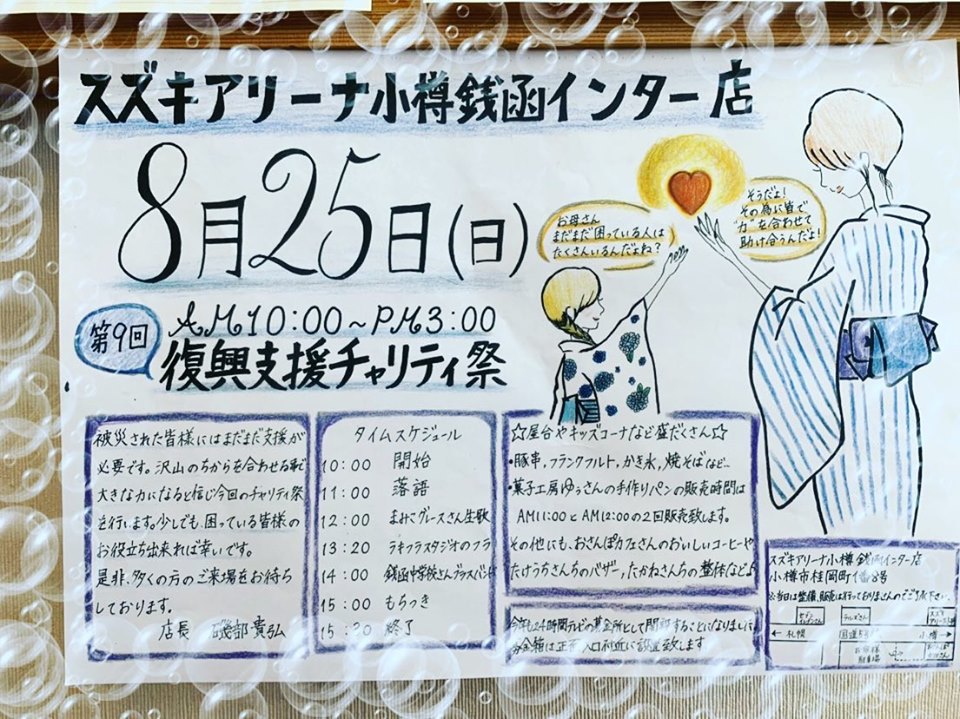 スズキアリーナ小樽銭函インター店
8月25日(日)
第9回
AM10:00~PM3:00
復興支援チャリティ祭
お母さん
まだまだ困っている人は
たくさんいるんだよね?
そうだよ!
その為に皆で
"力"を合わせて
助け合うんだよ!
被災された皆様にはまだまだ支援が
必要です。沢山のちからを合わせる事で
大きな力になると信じ今回のチャリティ祭
を行います。少しでも、困っている皆様の
お役立ち出来れば幸いです。
是非、多くの方のご来場をお待ち
しております。
店長 磯部貴弘
タイムスケジュール
10:00 開始
11:00 落語
12:00 まみこグレースさん生歌
13:20 ラキフラスタジオのフラ
14:00 銭函中学校さんブラスバンド
15:00 もちつき
15:30 終了
☆屋台やキッズコーナなど盛だくさん☆
・豚串,フランクフルト,かき氷,焼そばなど…
・菓子工房ゆぅさんの手作りパンの販売時間は
AM11:00とAM12:00の2回販売致します。
その他にも、おさんぽカフェさんのおいしいコーヒーや
たけうちさんちのバザー,たかねさんちの整体などよ
今年も24時間テレビの募金所として開設することになりました
募金箱は正面入口付近に設置致します
スズキアリーナ小樽銭函インター店
小樽市桂岡町1番8号
※当日は整備、販売は行っておりませんのでご了承下さい。
セブンイレブンさん
スズキ
←札幌 国道5号 小樽→
お客様
駐車場